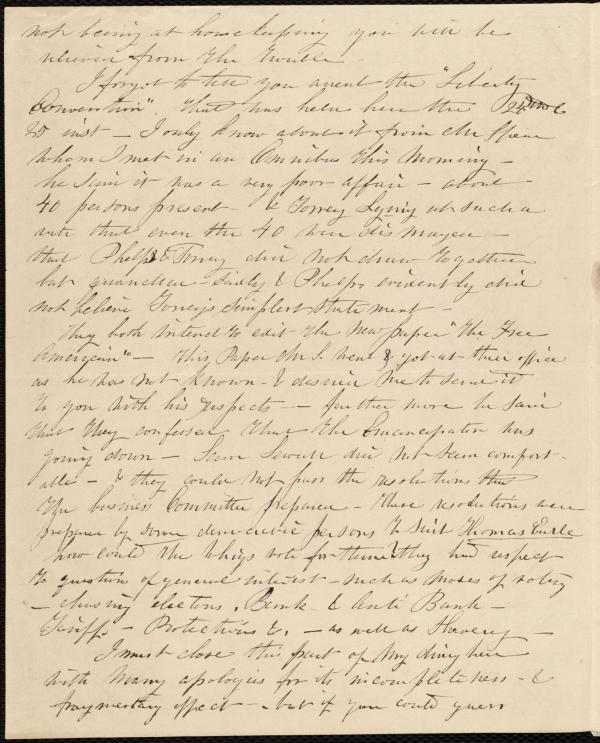 not being at housekeeping you will be
relieved from the trouble -
I forgot to tell you anent the "Liberty
Convention". that was held here the 24
25 inst - I only know about it from Mr Spear
whom I met in an Omnibus this Morning -
he said it was a very poor affair - about
40 persons present - & Torrey Lying at such a
rate that even the 40 were dismayed -
that Phelps & Torrey did not draw together
but quarrelled - & Phelps evidently did
not believe Torrey's simplest statement -
They both intend to edit the New paper "the Free
American" - this Paper Mr S. went & got at their office
as he was not known - & desired me to send it
to you with his respects - further more he said
that they confessed that the Emancipator was
going down - Sam Sewall did not seem comfort-
able - & they could not pass the resolutions that
the business Committee prepared - these resolutions were
prepared by some democratic persons to suit Thomas Earle
how could the Whigs vote for them? they had respect
to questions of general interest - such as modes of voting
- chusing electors, Bank & Anti Bank -
Tariff - Protections &. - as well as Slavery -
I must close this part of my diary here
with many apologies for its incompleteness - &
fragmentary effect - but if you could guess